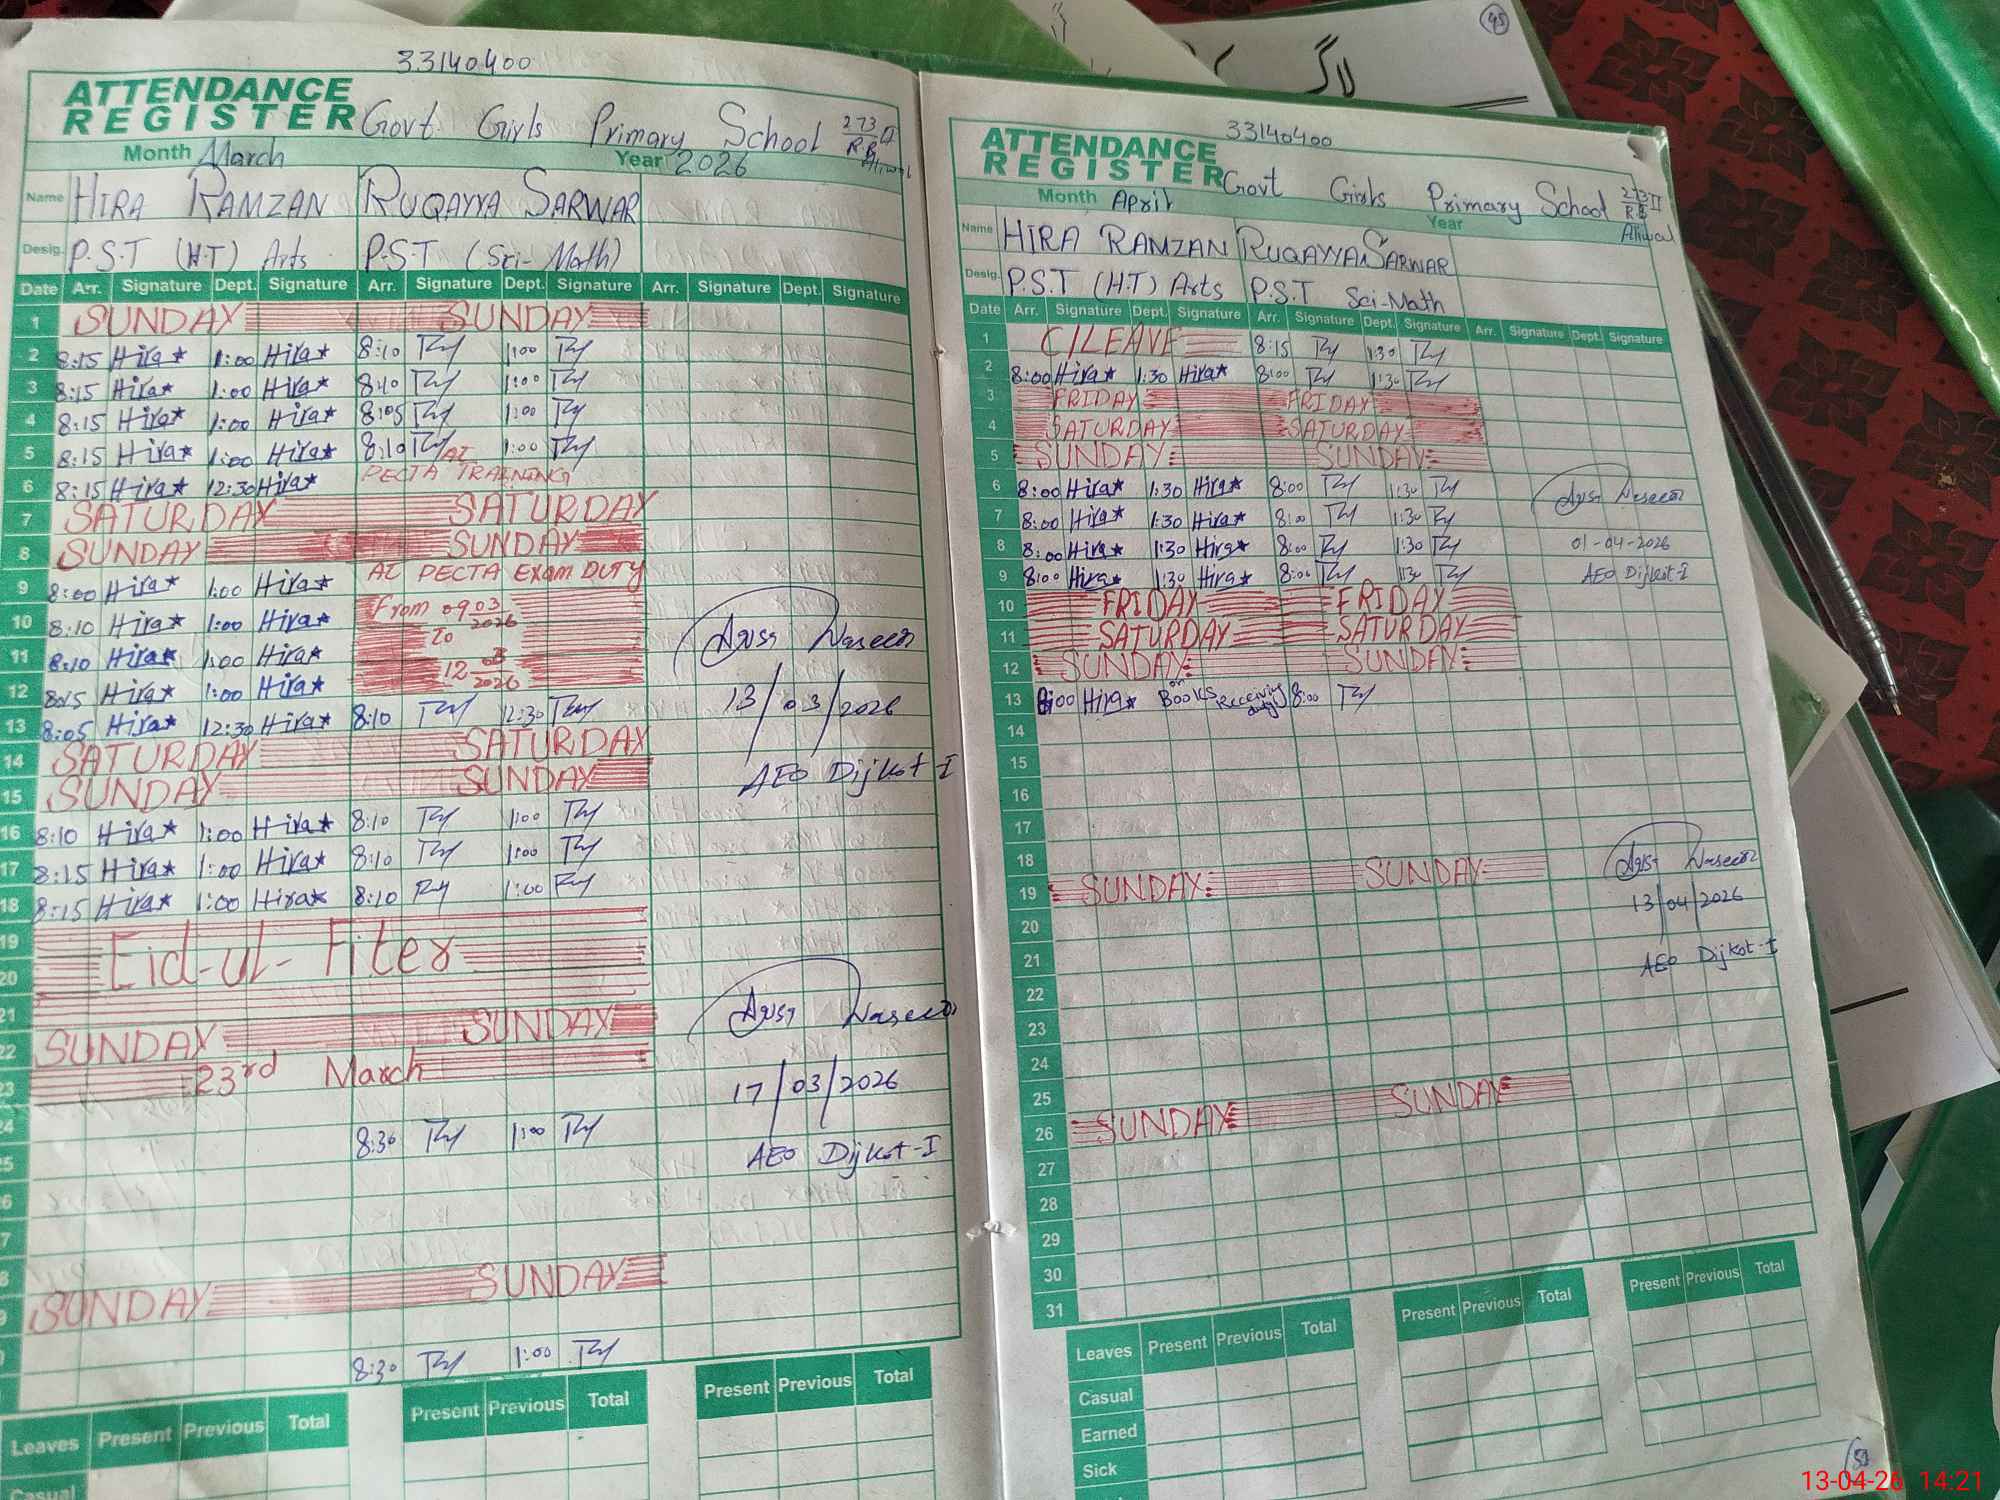 33140400
ATTENDANCE
REGISTER Govt Girls Primary School 273 II
R.B
Month March Year 2026
Name HIRA RAMZAN RUQAYYA SARWAR
Desig. P.S.T (H.T) Arts P.S.T (Sci-Math)
Date Arr. Signature Dept. Signature Arr. Signature Dept. Signature Arr. Signature Dept. Signature
1 SUNDAY SUNDAY
2 8:15 Hira 1:00 Hira 8:10 1:00
3 8:15 Hira 1:00 Hira 8:10 1:00
4 8:15 Hira 1:00 Hira 8:05 1:00
5 8:15 Hira 1:00 Hira 8:10 1:00
6 8:15 Hira 12:30 Hira AI PECTA TRAINING
7 SATURDAY SATURDAY
8 SUNDAY SUNDAY
9 8:00 Hira 1:00 Hira AI PECTA EXAM DUTY
10 8:10 Hira 1:00 Hira From 09 03 2026
11 8:10 Hira 1:00 Hira To
12 8:15 Hira 1:00 Hira 12 03 2026
13 8:05 Hira 12:30 Hira 8:10 12:30
14 SATURDAY SATURDAY
15 SUNDAY SUNDAY
16 8:10 Hira 1:00 Hira 8:10 1:00
17 8:15 Hira 1:00 Hira 8:10 1:00
18 8:15 Hira 1:00 Hira 8:10 1:00
19 Eid-ul-Fiter
20
21
22 SUNDAY SUNDAY
23 23rd March
24 8:30 1:00
SUNDAY SUNDAY
8:30 1:00
Naseer
13/03/2026
AEO Dijkot-I
Naseer
17/03/2026
AEO Dijkot-I
Leaves Present Previous Total Present Previous Total Present Previous Total
Casual
33140400
ATTENDANCE
REGISTER Govt Girls Primary School 273 II
R.B
Aliwal
Month April Year
Name HIRA RAMZAN RUQAYYA SARWAR
Desig. P.S.T (H.T) Arts P.S.T Sci-Math
Date Arr. Signature Dept. Signature Arr. Signature Dept. Signature Arr. Signature Dept. Signature
1 C/LEAVE 8:15 1:30
2 8:00 Hira 1:30 Hira 8:00 1:30
3 FRIDAY FRIDAY
4 SATURDAY SATURDAY
5 SUNDAY SUNDAY
6 8:00 Hira 1:30 Hira 8:00 1:30
7 8:00 Hira 1:30 Hira 8:00 1:30
8 8:00 Hira 1:30 Hira 8:00 1:30
9 8:00 Hira 1:30 Hira 8:00 1:30
10 FRIDAY FRIDAY
11 SATURDAY SATURDAY
12 SUNDAY SUNDAY
13 8:00 Hira on Books Receiving duty 8:00
14
15
16
17
18
19 SUNDAY SUNDAY
20
21
22
23
24
25
26 SUNDAY SUNDAY
27
28
29
30
31
Naseer
01-04-2026
AEO Dijkot-I
Naseer
13/04/2026
AEO Dijkot-I
Leaves Present Previous Total Present Previous Total Present Previous Total
Casual
Earned
Sick
13-04-26 14:21